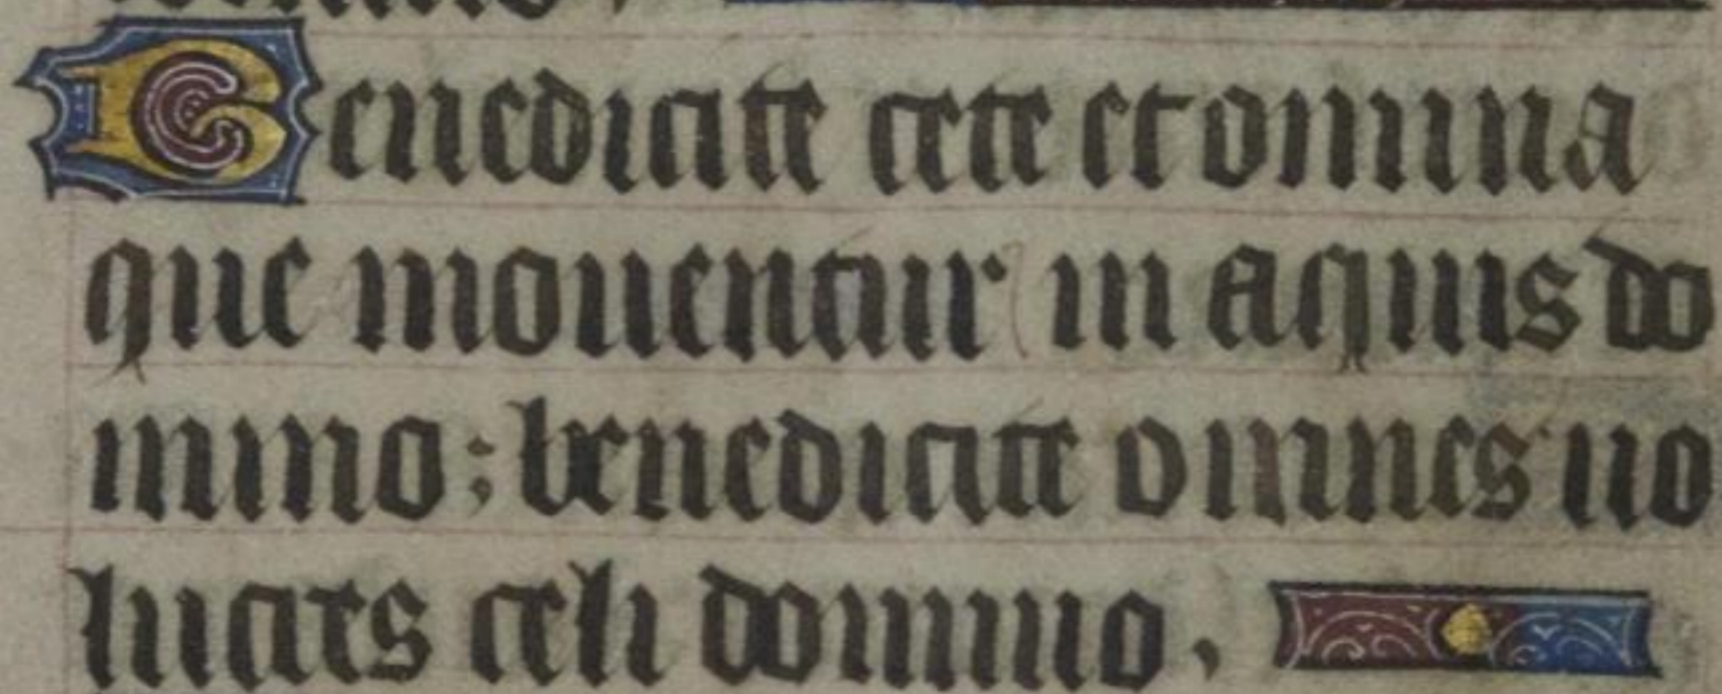 Benedicite cete et omnia
que mouentur in aquis do
mino : benedicite omnes uo
lucres celi domino .